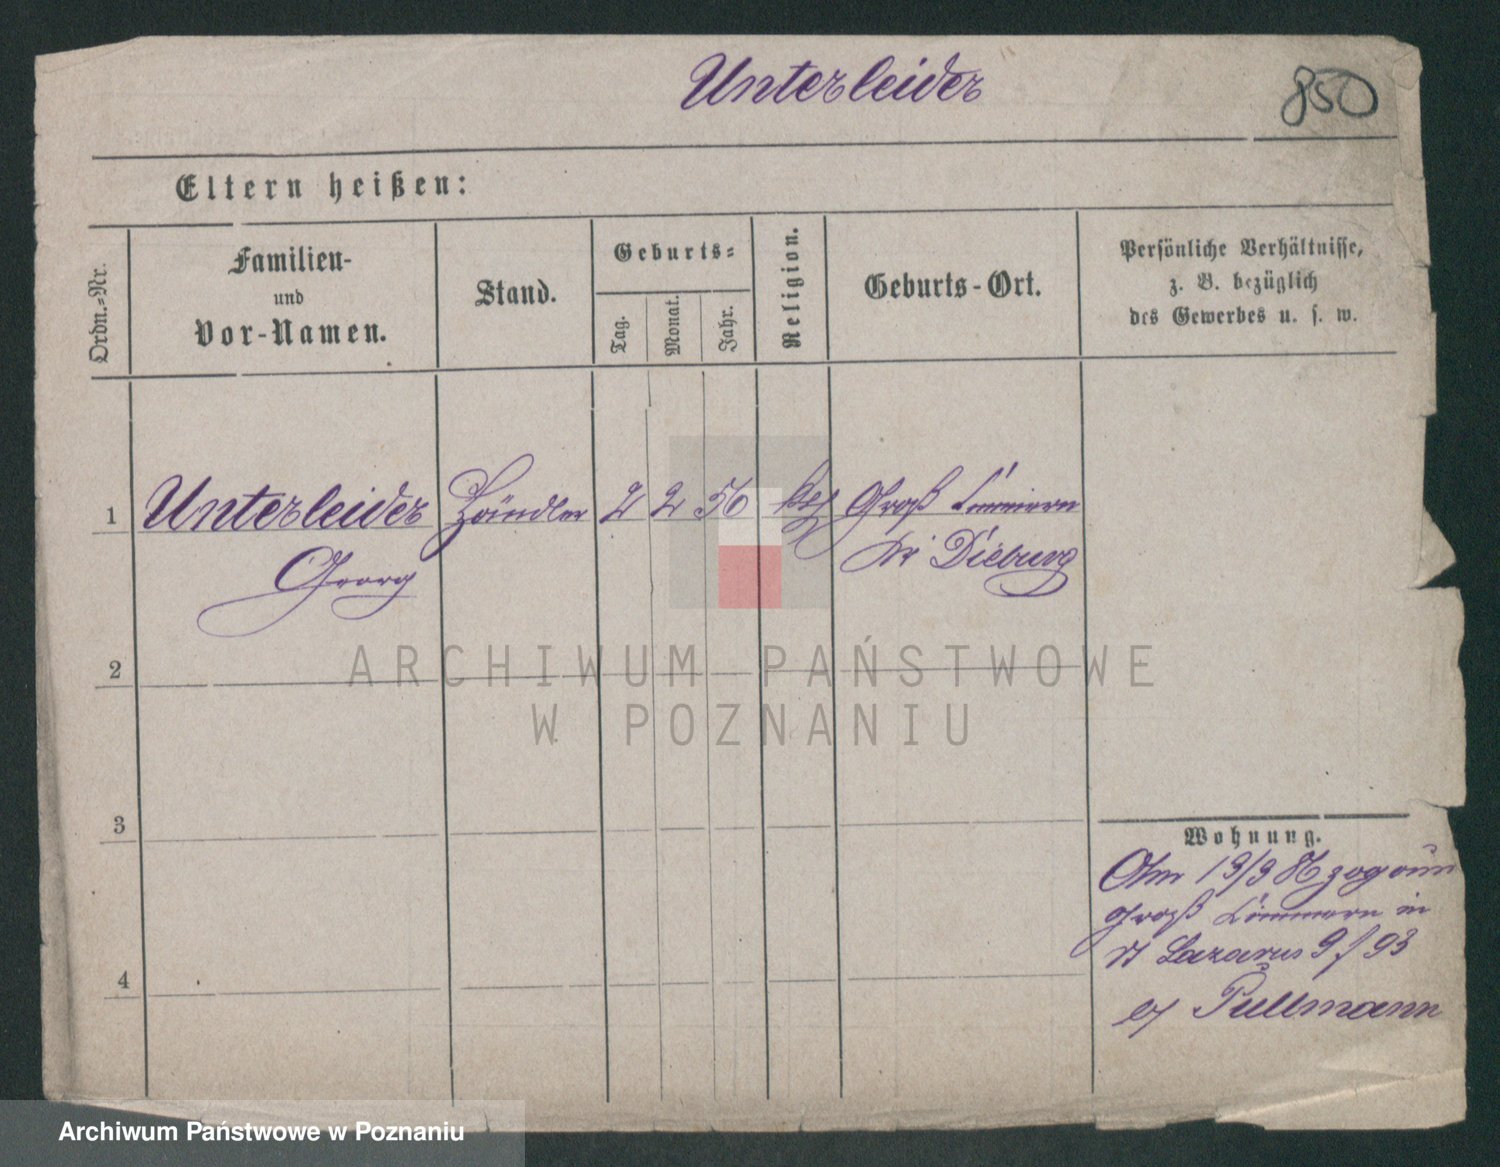 Unterleider
850
Eltern heißen:
Ordn.-Nr.
Familien-
und
Vor-Namen.
Stand.
Geburts-
Tag.
Monat.
Jahr.
Religion.
Geburts-Ort.
Persönliche Verhältnisse,
z. B. bezüglich
des Gewerbes u. s. w.
1 Unterleider Händler 2 2 56 Groß
Georg Dieburg
2
ARCHIWUM PAŃSTWOWE
W POZNANIU
3
Wohnung.
19/9 86 zog
Groß in
St Lazarus 9 f 93
Pullmann
4
Archiwum Państwowe w Poznaniu